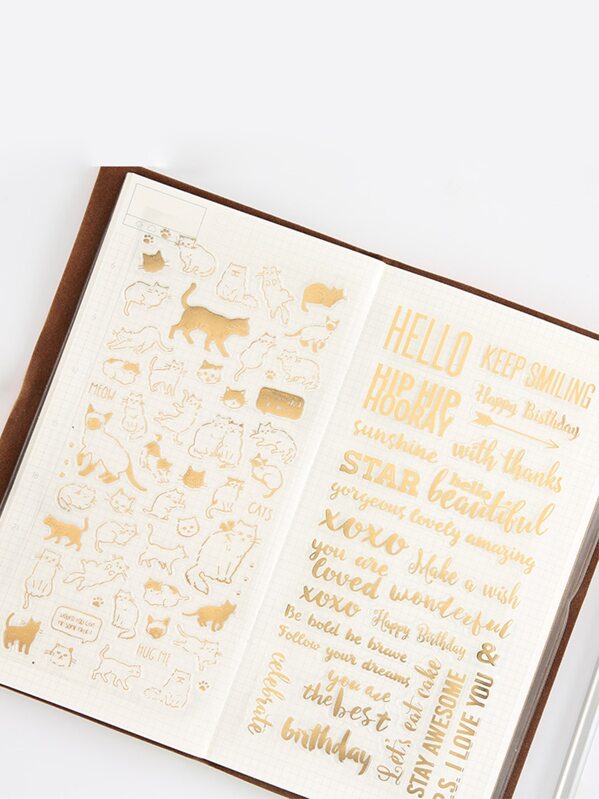 MEOW
CATS
HUG ME
HELLO
KEEP SMILING
HIP HIP
HOORAY
Happy Birthday
sunshine
with thanks
STAR
hello
beautiful
gorgeous lovely amazing
xoxo
Make a wish
you are
loved wonderful
xoxo
Happy Birthday
&
Be bold be brave
Follow your dreams
you are
the best
celebrate
birthday
Let's eat cake
STAY AWESOME
P.S. I LOVE YOU